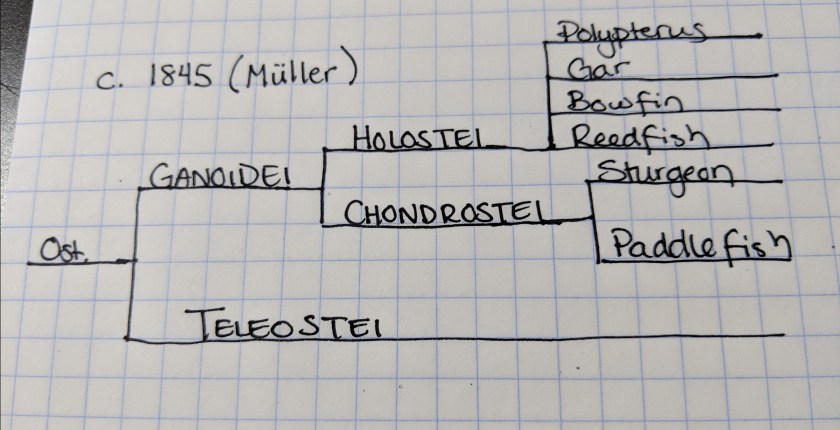 Polypterus
c. 1845 (Müller)
Gar
Bowfin
HOLOSTEI
Reedfish
GANOIDEI
Sturgeon
CHONDROSTEI
Ost.
Paddlefish
TELEOSTEI